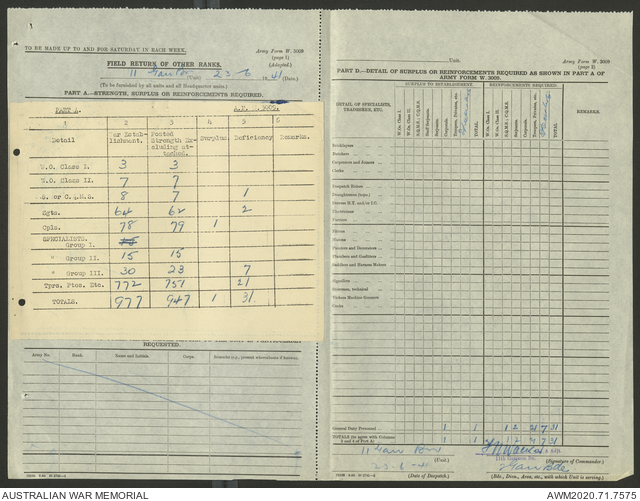 TO BE MADE UP TO AND FOR SATURDAY IN EACH WEEK.
Army Form W. 3009
(page 1)
(Adapted.)
FIELD RETURN OF OTHER RANKS.
11 (Unit) 23-6 1941 (Date.)
(To be furnished by all units and all Headquarter units.)
PART A.—STRENGTH, SURPLUS OR REINFORCEMENTS REQUIRED.
PART A. A.F. W.3009.
1 2 3 4 5 6
Detail War Establishment. Posted Strength Excluding attached. Surplus. Deficiency Remarks.
W.O. Class I. 3 3
W.O. Class II. 7 7
S. or C.Q.M.S. 8 7 1
Sgts. 64 62 2
Cpls. 78 79 1
SPECIALISTS.
Group I.
" Group II. 15 15
" Group III. 30 23 7
Tprs. Ptes. Etc. 772 751 21
TOTALS. 977 947 1 31
REQUESTED.
Army No. Rank. Name and Initials Corps. Remarks
Unit.
Army Form W. 3009
(page 2)
PART D.—DETAIL OF SURPLUS OR REINFORCEMENTS REQUIRED AS SHOWN IN PART A OF ARMY FORM W. 3009.
DETAIL OF SPECIALISTS, TRADESMEN, ETC.
SURPLUS TO ESTABLISHMENT.
REINFORCEMENTS REQUIRED.
REMARKS.
W.Os. Class I.
W.Os. Class II.
Sergeants.
Corporals.
TOTAL.
Butchers
Carpenters and Joiners
Clerks
Despatch Riders
Electricians
Fitters
Masons
Painters and Decorators
Plumbers and Gasfitters
Saddlers and Harness Makers
Signallers
Storemen, technical
Vickers Machine Gunners
Cooks
General Duty Personnel 1 1 1 2 21 7 31
TOTALS (to agree with Columns 4 and 5 of Part A) 1 1 1 2 21 7 31
(Unit.)
(Signature of Commander.)
23-6-41
(Date of Despatch.)
(Bde., Divn., Area, etc., with which Unit is serving.)
AUSTRALIAN WAR MEMORIAL
AWM2020.71.7575